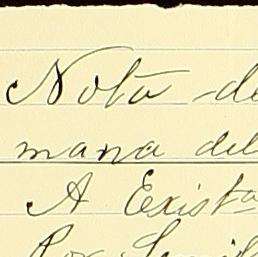 Nota de
mana del
A Exista
Por